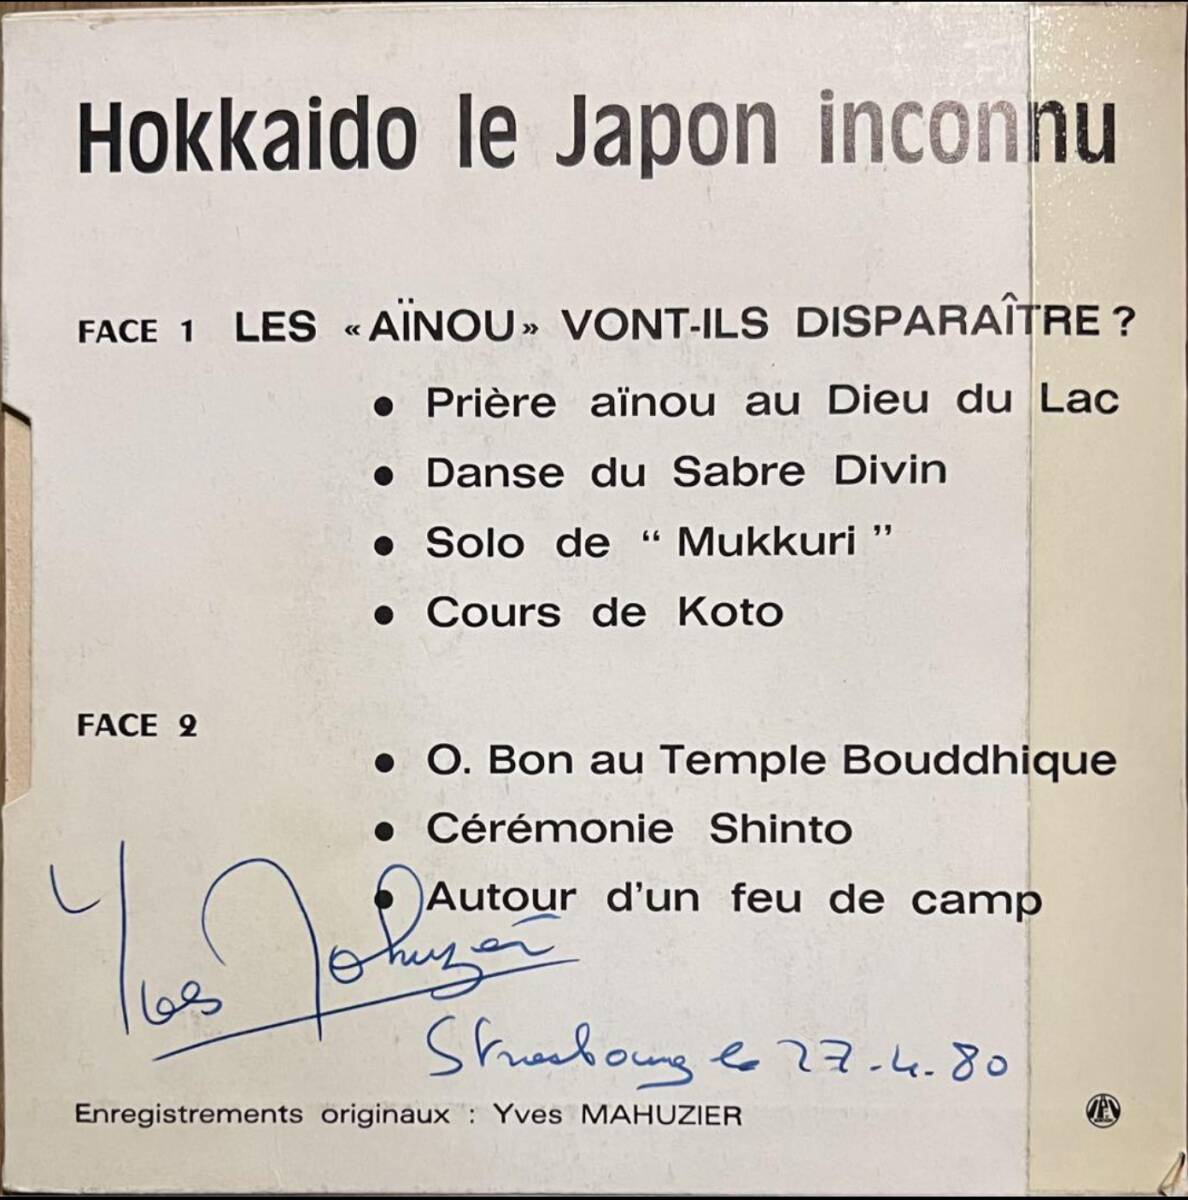 Hokkaido le Japon inconnu
FACE 1 LES « AÏNOU» VONT-ILS DISPARAÎTRE ?
• Prière aïnou au Dieu du Lac
• Danse du Sabre Divin
• Solo de “ Mukkuri ”
• Cours de Koto
FACE 2
• O. Bon au Temple Bouddhique
• Cérémonie Shinto
• Autour d'un feu de camp
Yves Mahuzier
Strasbourg le 27.4.80
Enregistrements originaux : Yves MAHUZIER